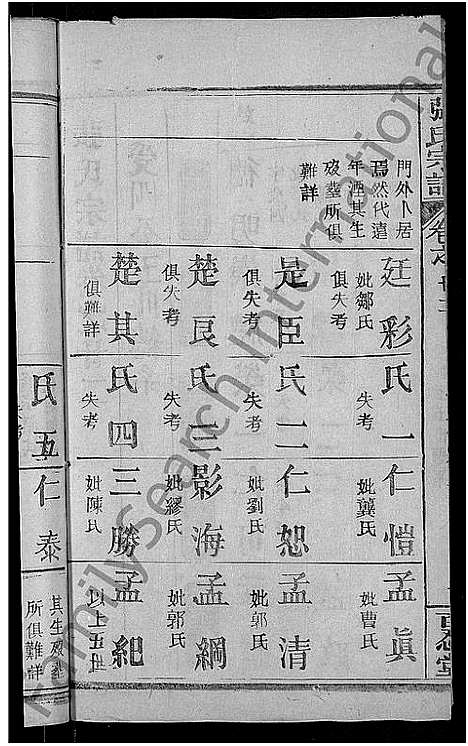 張氏宗譜
門外卜居
焉然代遠
年湮其生
歿塟所俱
難詳
廷彩
妣鄒氏
俱失考
是臣
俱失考
楚良
俱失考
楚其
俱難詳
氏一
失考
氏二
失考
氏三
失考
氏四
失考
仁愷
妣龔氏
仁恕
妣劉氏
影海
妣繆氏
三勝
妣陳氏
孟眞
妣曹氏
孟清
妣郭氏
孟綱
妣郭氏
孟紀
以上五世
百忍堂
氏五
仁泰
其生歿塟
所俱難詳
FamilySearch International